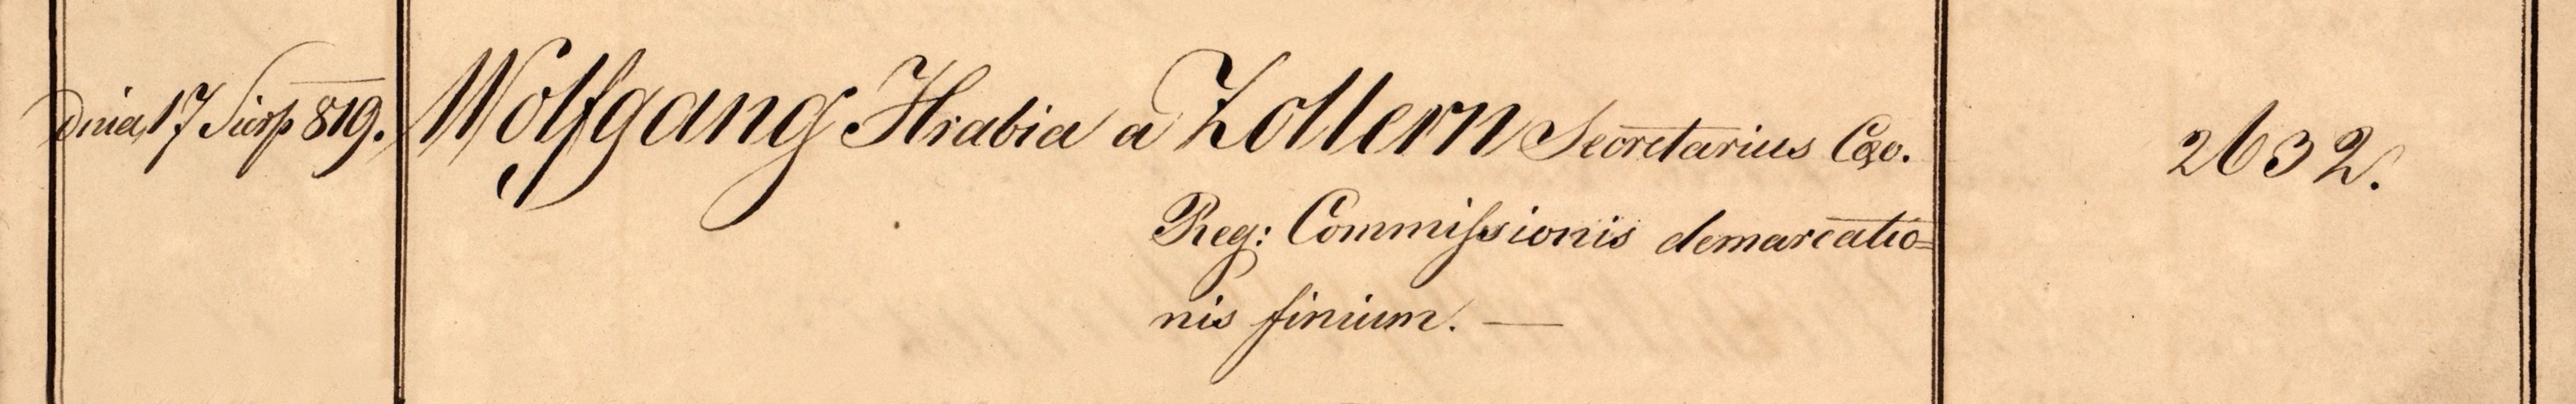 dnia 17 Sierp 819. Wolfgang Hrabia a Zollern Secretarius Cæo. 2632.
Reg: Commissionis demarcatio=
nis finium. —